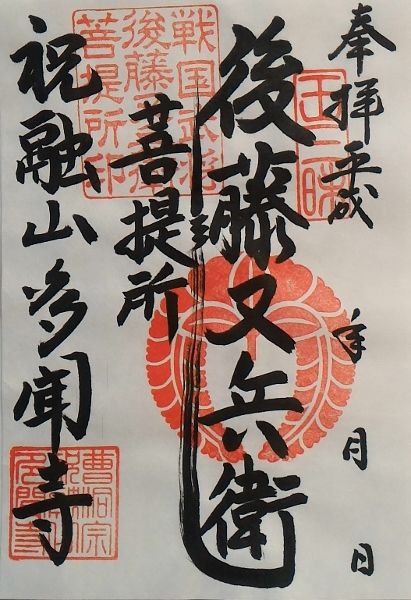 奉拝 平成 年 月 日
後藤又兵衛
菩提所
祝融山多聞寺
戦国武将
後藤又兵衛
菩提所印
曹洞宗
祝融山
多聞寺